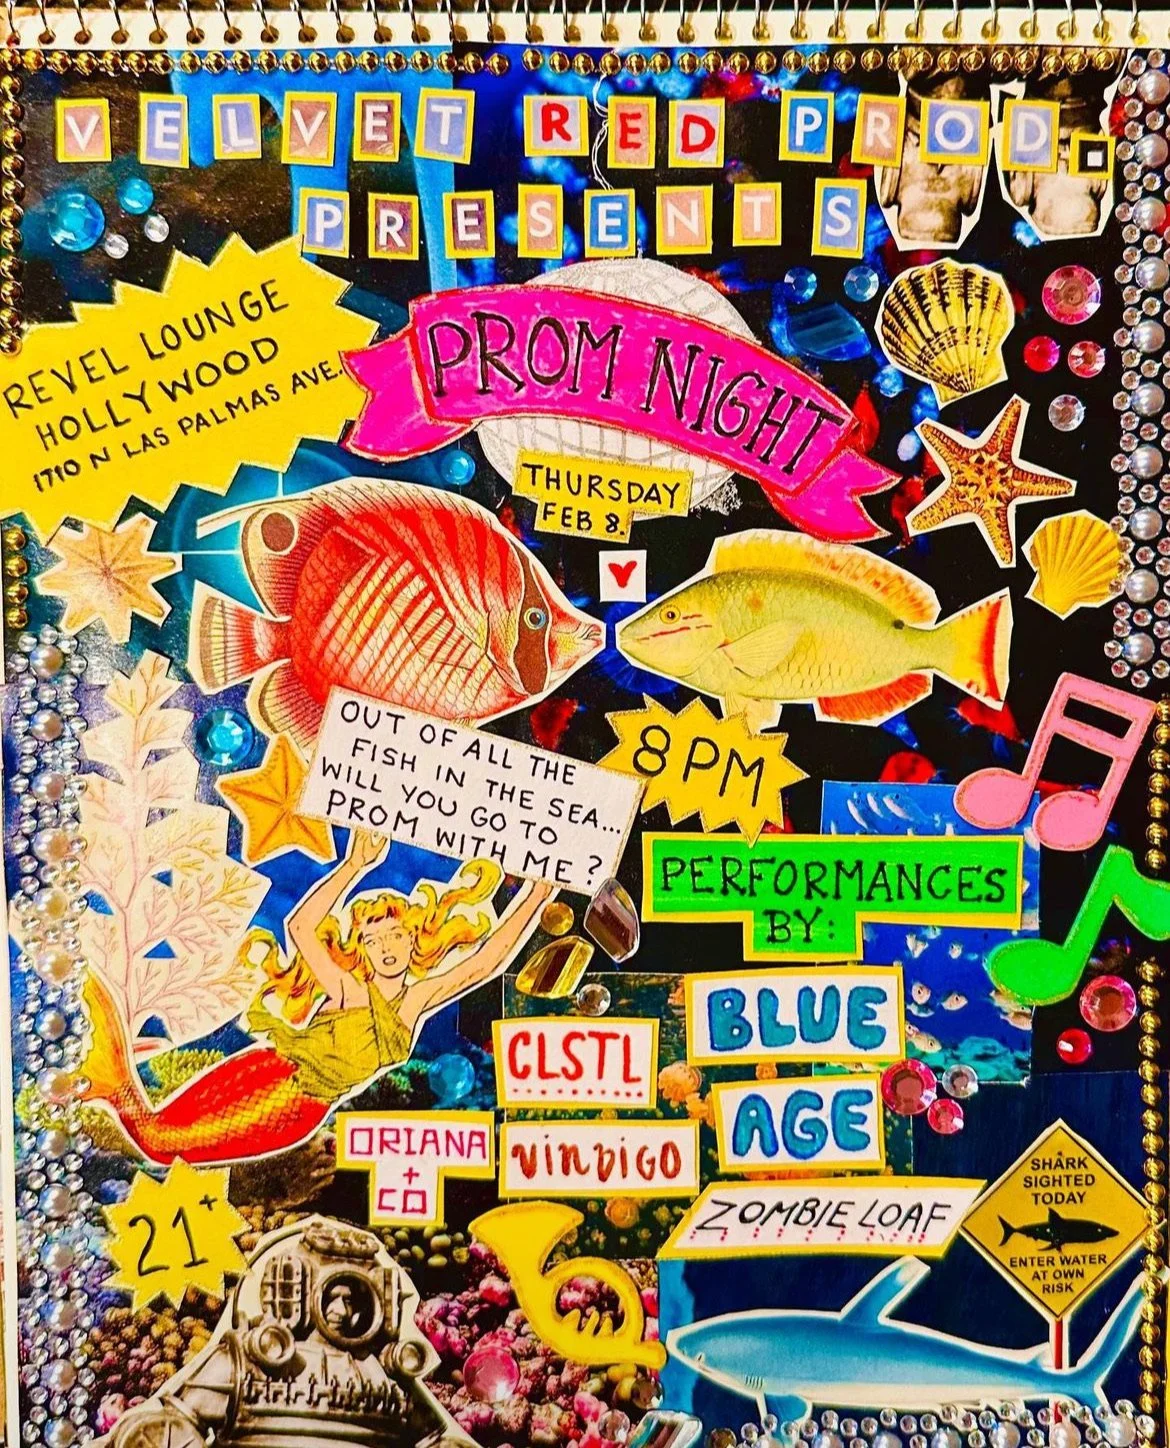 VELVET RED PROD.
PRESENTS
REVEL LOUNGE
HOLLYWOOD
1710 N LAS PALMAS AVE.
PROM NIGHT
THURSDAY
FEB 8.
OUT OF ALL THE
FISH IN THE SEA...
WILL YOU GO TO
PROM WITH ME?
8PM
PERFORMANCES
BY:
BLUE
AGE
CLSTL
ORIANA
+
CO
VINDIGO
ZOMBIE LOAF
21+
SHARK
SIGHTED
TODAY
ENTER WATER
AT OWN
RISK